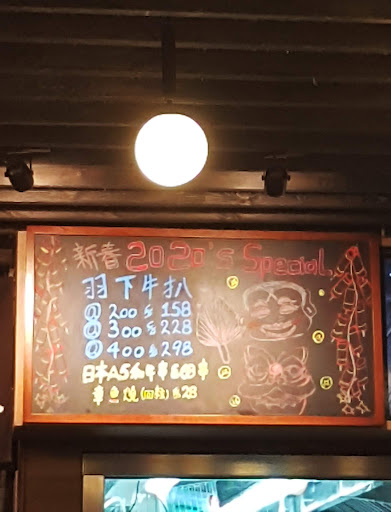 新春2020's Special
羽下牛扒
① 200g 158
② 300g 228
③ 400g 298
日本A5和牛串 $68串
串魚燒(四粒) $28